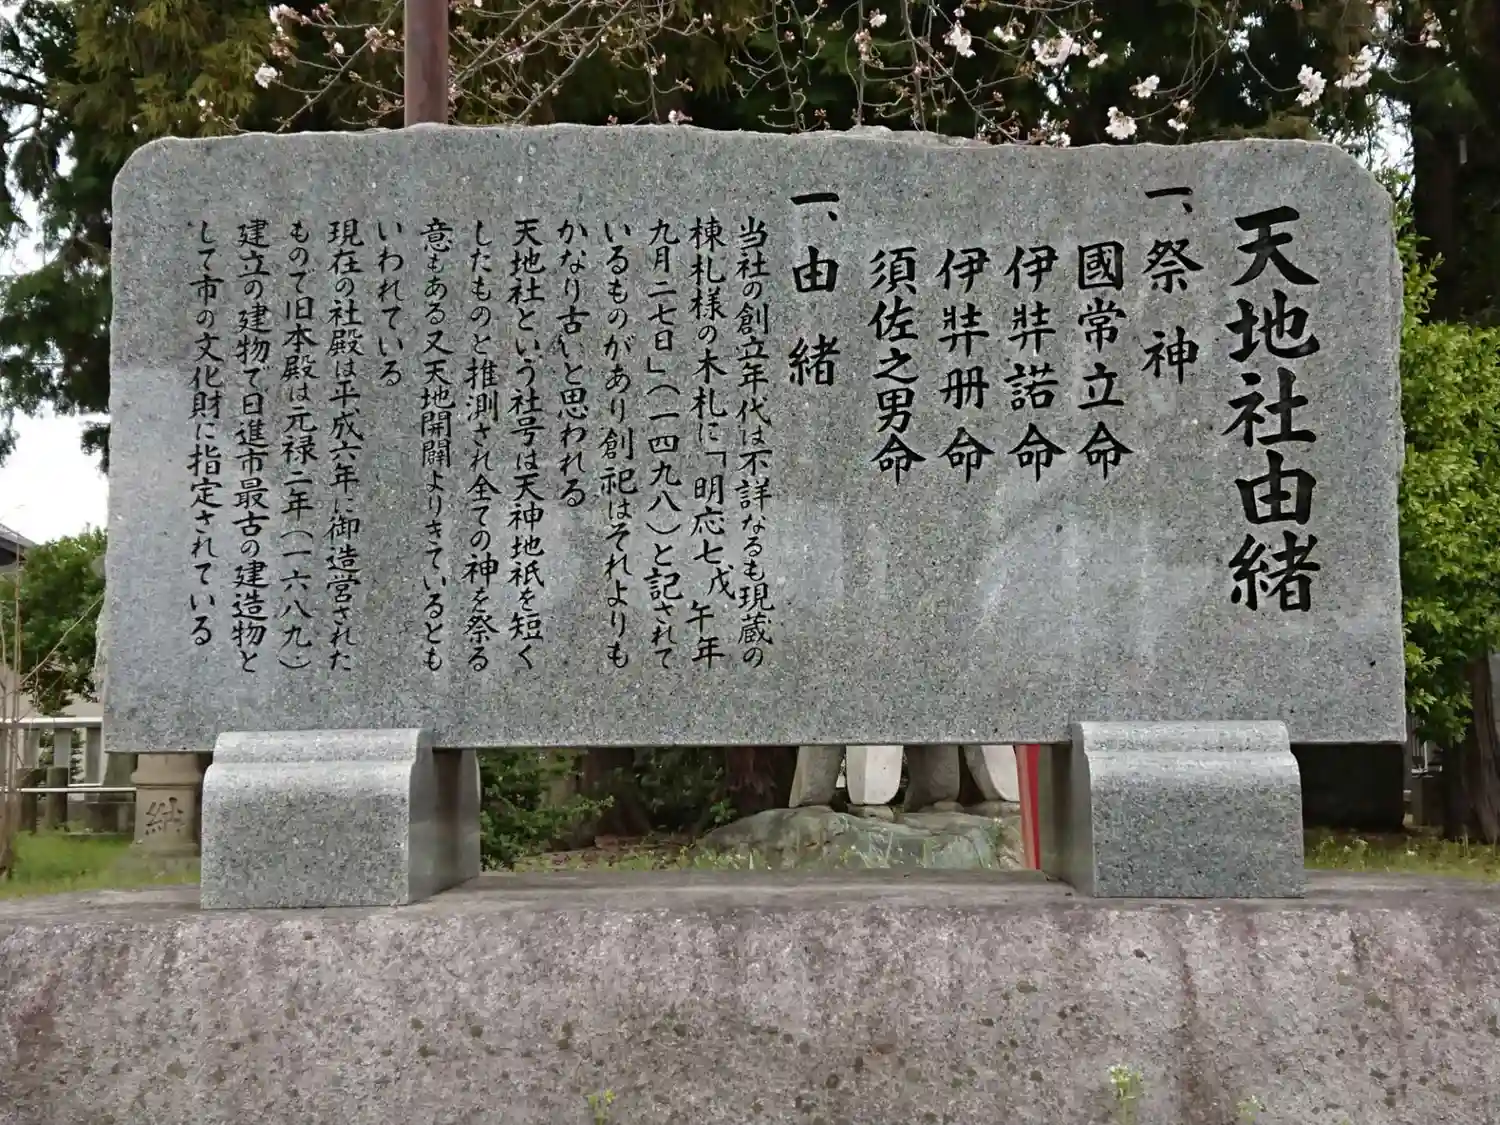 天地社由緒
一、祭神
國常立命
伊弉諾命
伊弉册命
須佐之男命
一、由緒
当社の創立年代は不詳なるも現蔵の
棟札様の木札に「明応七戊午年
九月二七日」（一四九八）と記されて
いるものがあり創祀はそれよりも
かなり古いと思われる
天地社という社号は天神地祇を短く
したものと推測され全ての神を祭る
意もある又天地開闢よりきているとも
いわれている
現在の社殿は平成六年に御造営された
もので旧本殿は元禄二年（一六八九）
建立の建物で日進市最古の建造物と
して市の文化財に指定されている
納